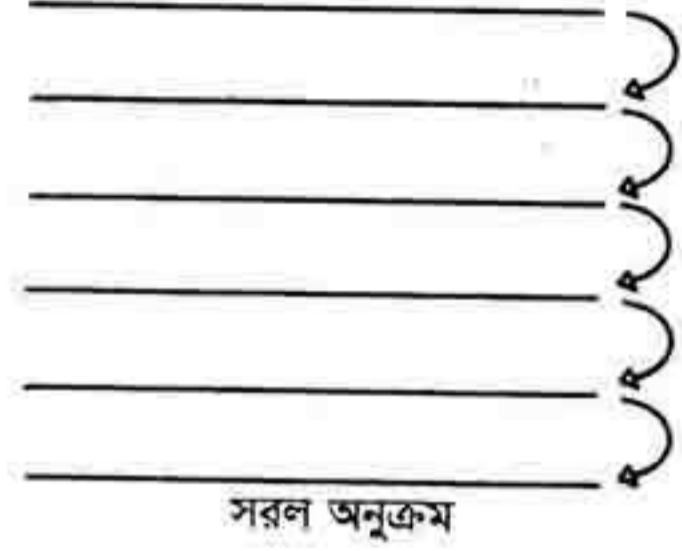 সরল অনুক্রম